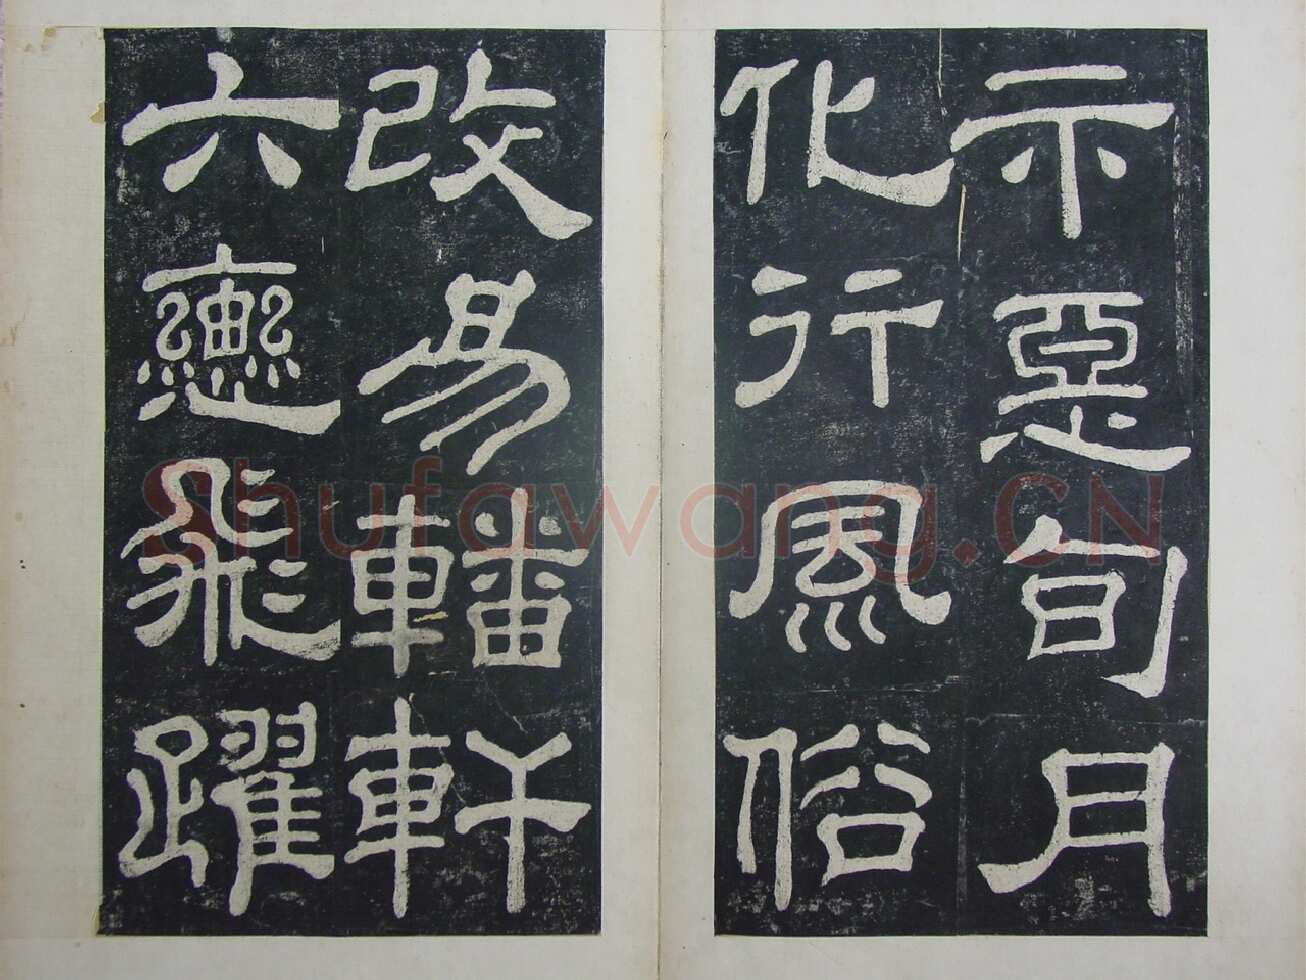 示惡旬月
化行風俗
改易轓軒
六轡飛躍
Shufawang.CN